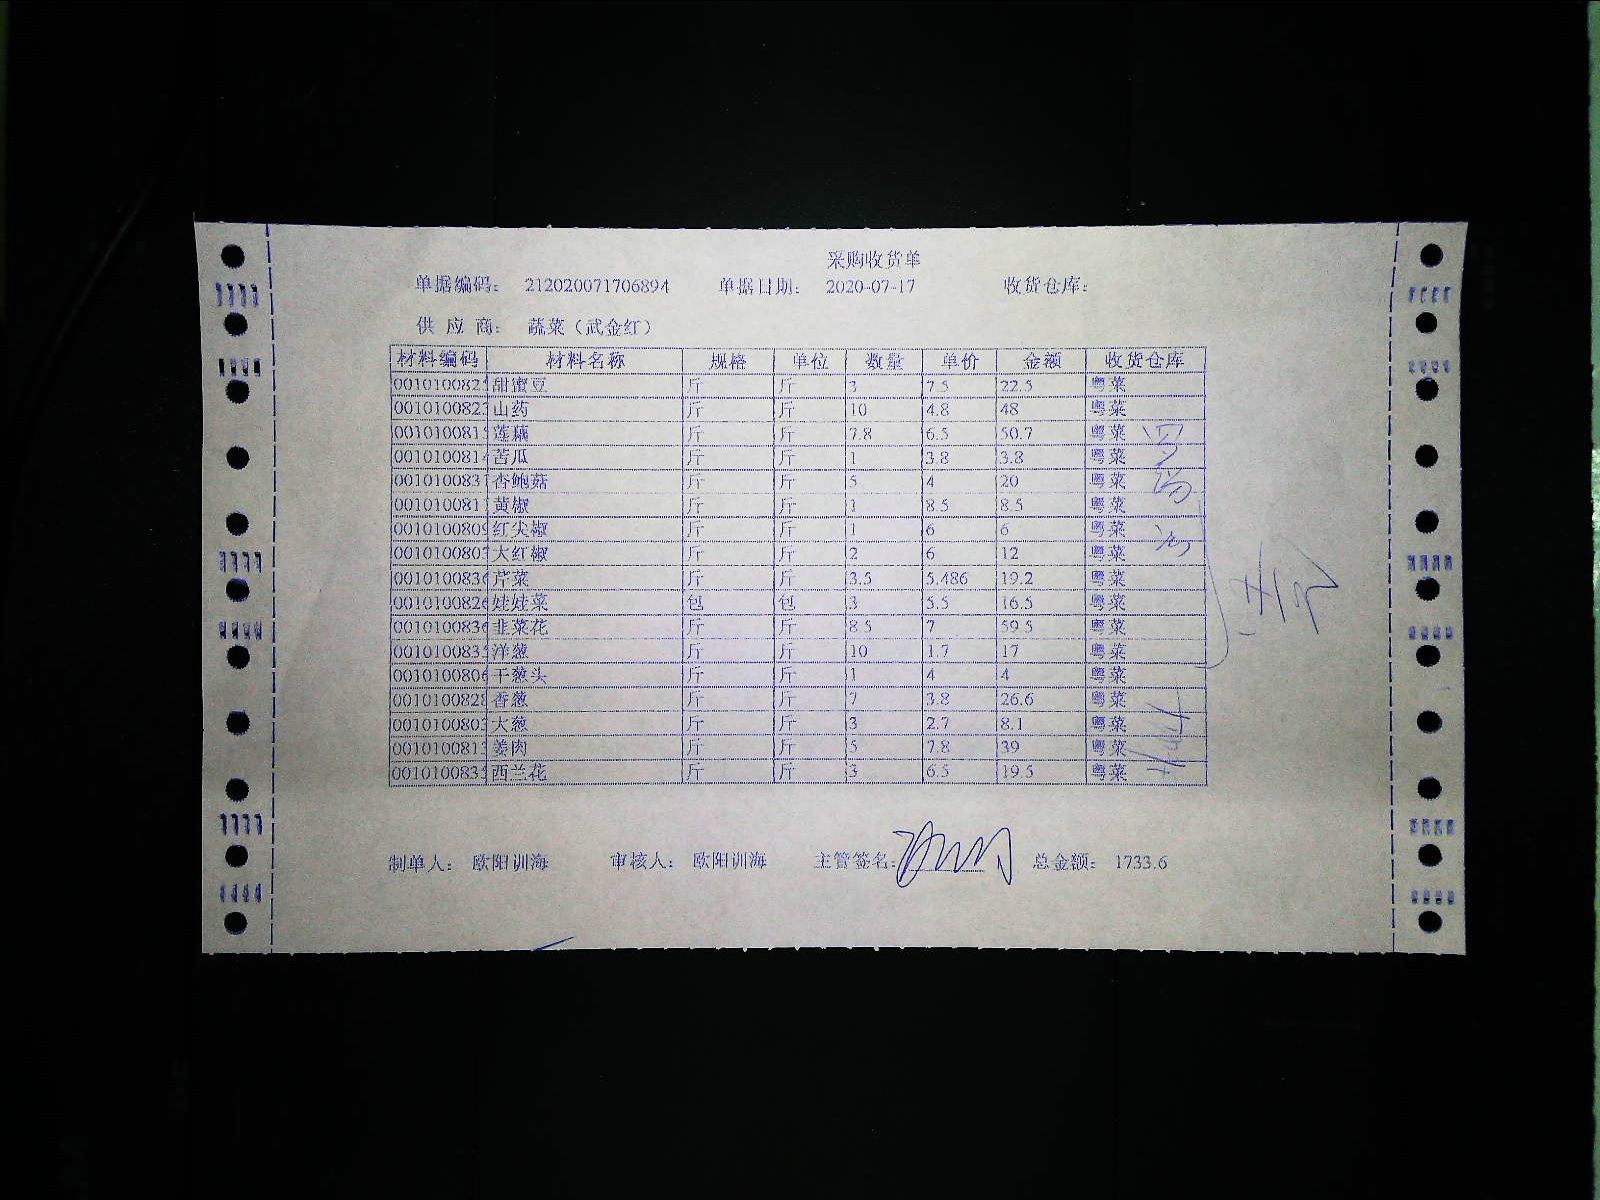 采购收货单
单据编码： 212020071706894 单据日期： 2020-07-17 收货仓库：
供 应 商： 蔬菜（武金红）
材料编码 材料名称 规格 单位 数量 单价 金额 收货仓库
001010082 甜蜜豆 斤 斤 3 7.5 22.5 粤菜
001010082 山药 斤 斤 10 4.8 48 粤菜
001010081 莲藕 斤 斤 7.8 6.5 50.7 粤菜
001010081 苦瓜 斤 斤 1 3.8 3.8 粤菜
001010083 杏鲍菇 斤 斤 5 4 20 粤菜
001010081 黄椒 斤 斤 1 8.5 8.5 粤菜
001010080 红尖椒 斤 斤 1 6 6 粤菜
001010080 大红椒 斤 斤 2 6 12 粤菜
001010083 芹菜 斤 斤 3.5 5.486 19.2 粤菜
001010082 娃娃菜 包 包 3 5.5 16.5 粤菜
001010083 韭菜花 斤 斤 8.5 7 59.5 粤菜
001010083 洋葱 斤 斤 10 1.7 17 粤菜
001010080 干葱头 斤 斤 1 4 4 粤菜
001010082 香葱 斤 斤 7 3.8 26.6 粤菜
001010080 大葱 斤 斤 3 2.7 8.1 粤菜
001010081 姜肉 斤 斤 5 7.8 39 粤菜
001010083 西兰花 斤 斤 3 6.5 19.5 粤菜
制单人： 欧阳训海 审核人： 欧阳训海 主管签名： 总金额： 1733.6